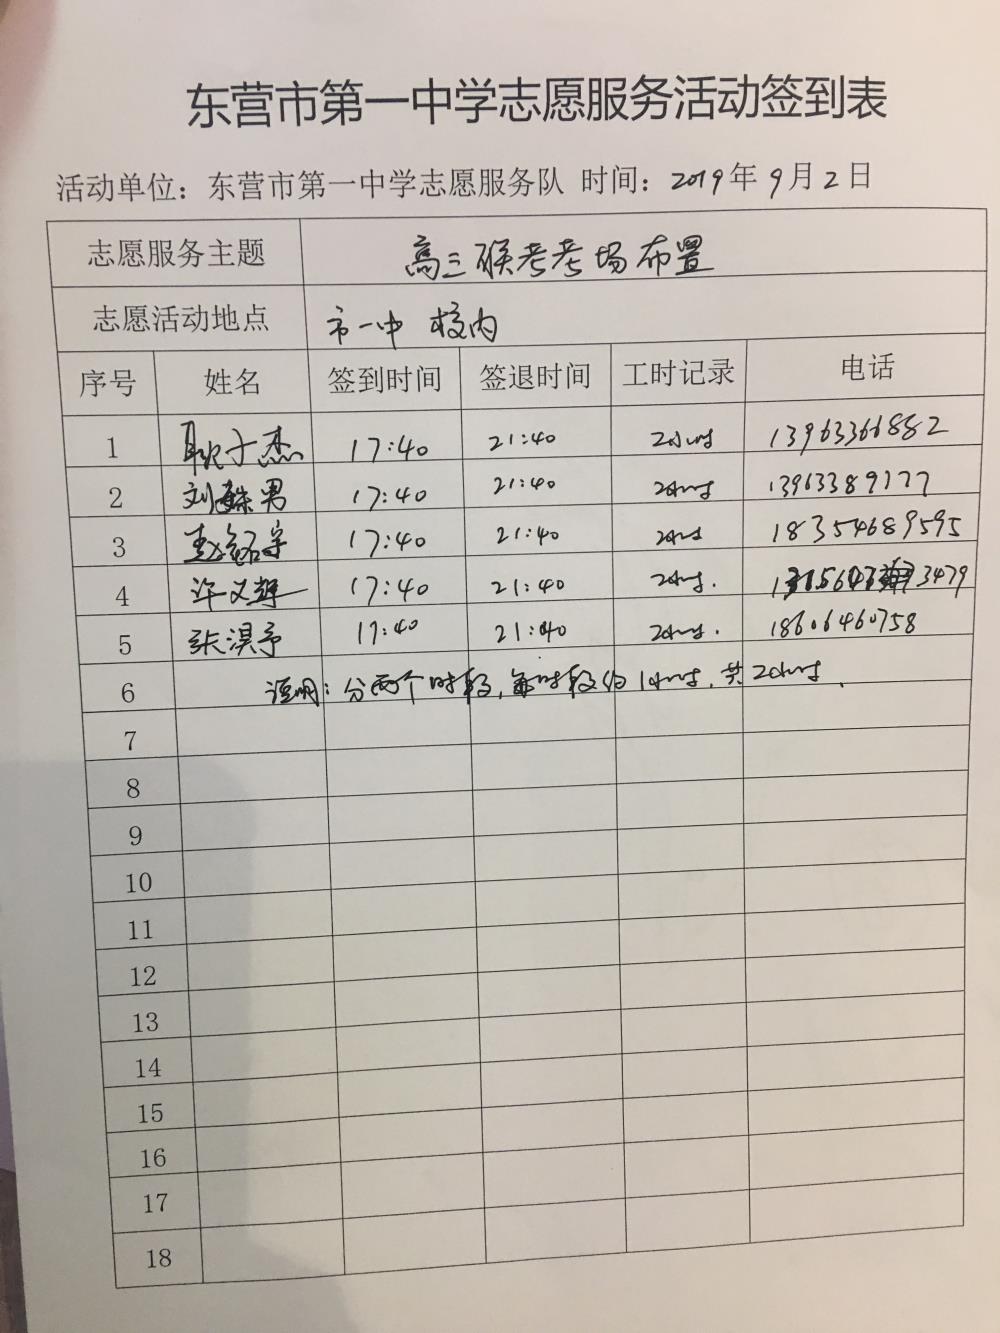 东营市第一中学志愿服务活动签到表
活动单位：东营市第一中学志愿服务队 时间：2019年9月2日
志愿服务主题 高三联考考场布置
志愿活动地点 市一中 校内
序号 姓名 签到时间 签退时间 工时记录 电话
1 耿子杰 17:40 21:40 2小时 13963366882
2 刘姝男 17:40 21:40 2小时 13963389177
3 赵铭宇 17:40 21:40 2小时 18354689595
4 许义辉 17:40 21:40 2小时. 3479
5 张淏予 17:40 21:40 2小时. 18606460758
6 说明：分两个时段，每时段约1小时，共2小时.
7
8
9
10
11
12
13
14
15
16
17
18